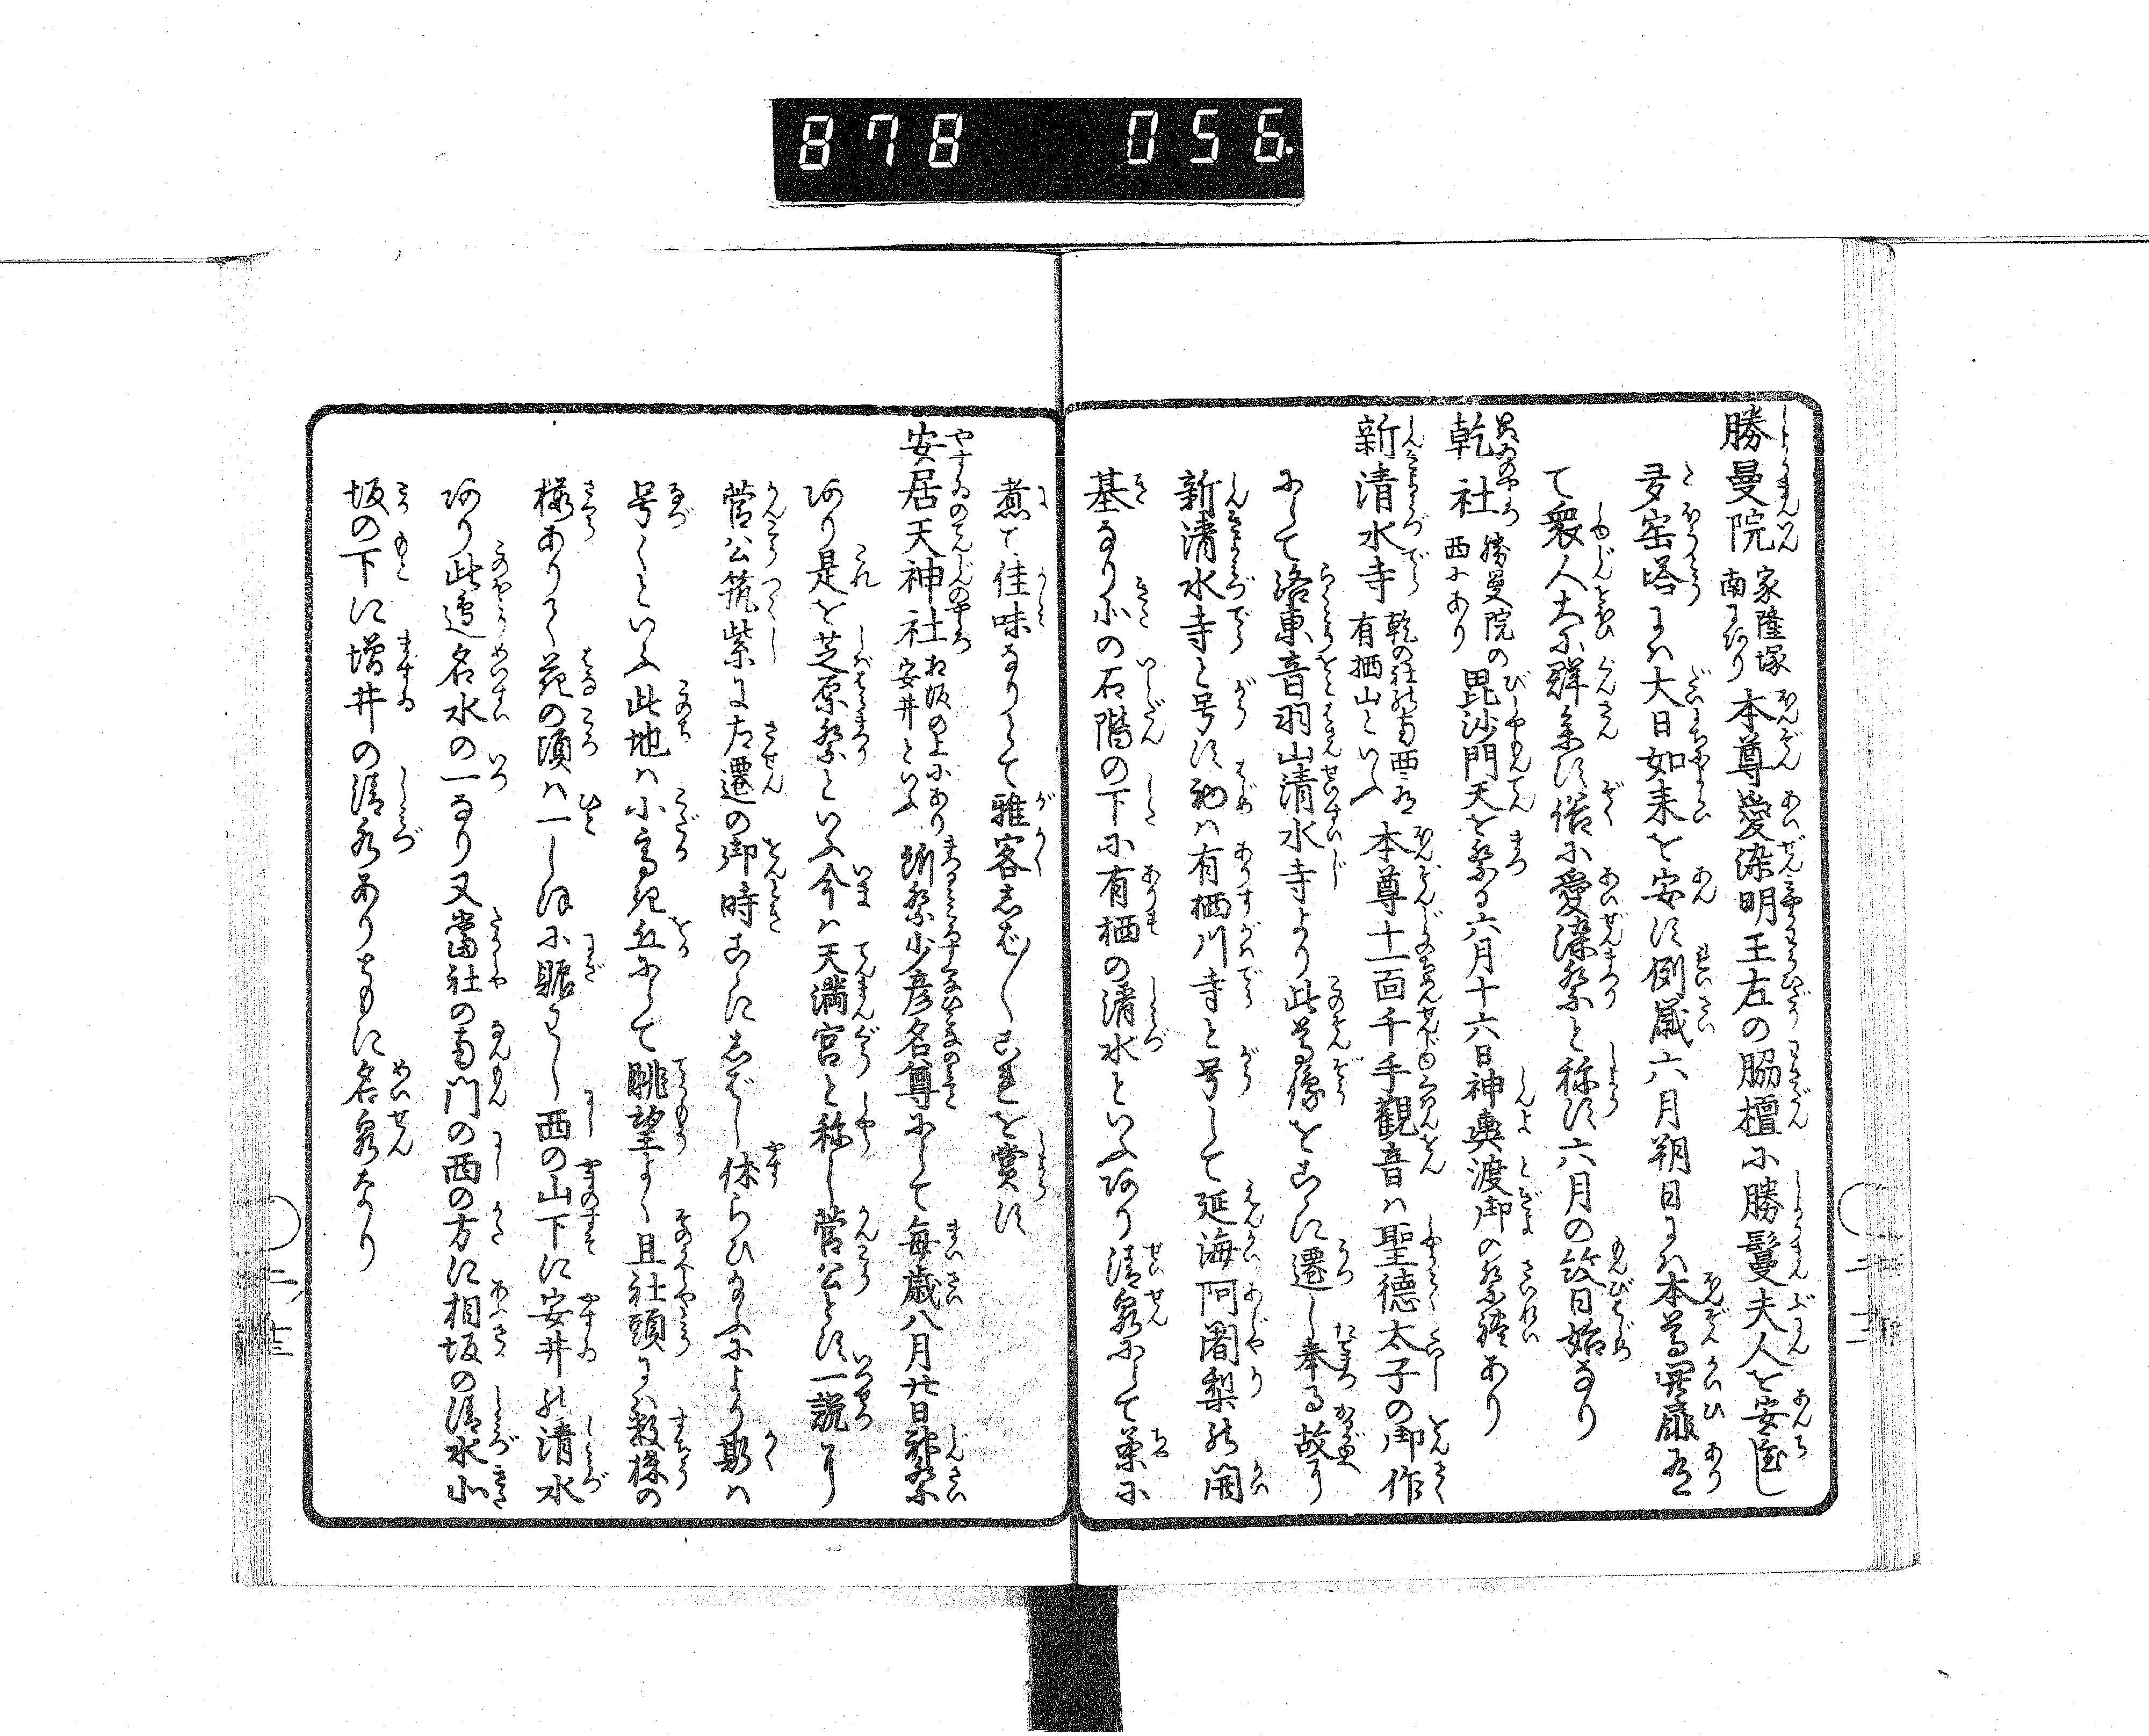 878 056.
勝曼院 家隆塚南にあり 本尊愛染明王左の脇檀に勝鬘夫人を安置し
多宝塔には大日如来を安ず例歳六月朔日には本尊開扉有
て衆人大に群参す俗に愛染祭と称す六月の紋日始なり
乾社 勝曼院の西にあり 毘沙門天を祭る六月十六日神輿渡御の祭禮あり
新清水寺 乾の社の南西にあり有栖山といふ 本尊十一面千手觀音は聖德太子の御作
にして洛東音羽山清水寺より此尊像をこゝに遷し奉る故に
新清水寺と号す初は有栖川寺と号して延海阿闍梨の開
基なり北の石階の下に有栖の清水といふあり清泉にして茶に
煮て佳味なりとて雅客しば〳〵これを賞す
安居天神社 お坂の上にあり安井といふ 所祭少彦名尊にして毎歳八月廿日祢祭
あり是を芝原祭といふ今は天満宮と称し菅公とす一説に
菅公筑紫に左遷の御時こゝにしばし休らひ給ふにより斯は
号くといふ此地は小高き丘にして眺望よく且社頭には数株の
桜ありて花の頃は一しほに賑わし西の山下に安井の清水
あり此辺名水の一なり又當社の南門の西の方に相坂の清水北
坂の下に増井の清水ありともに名泉なり